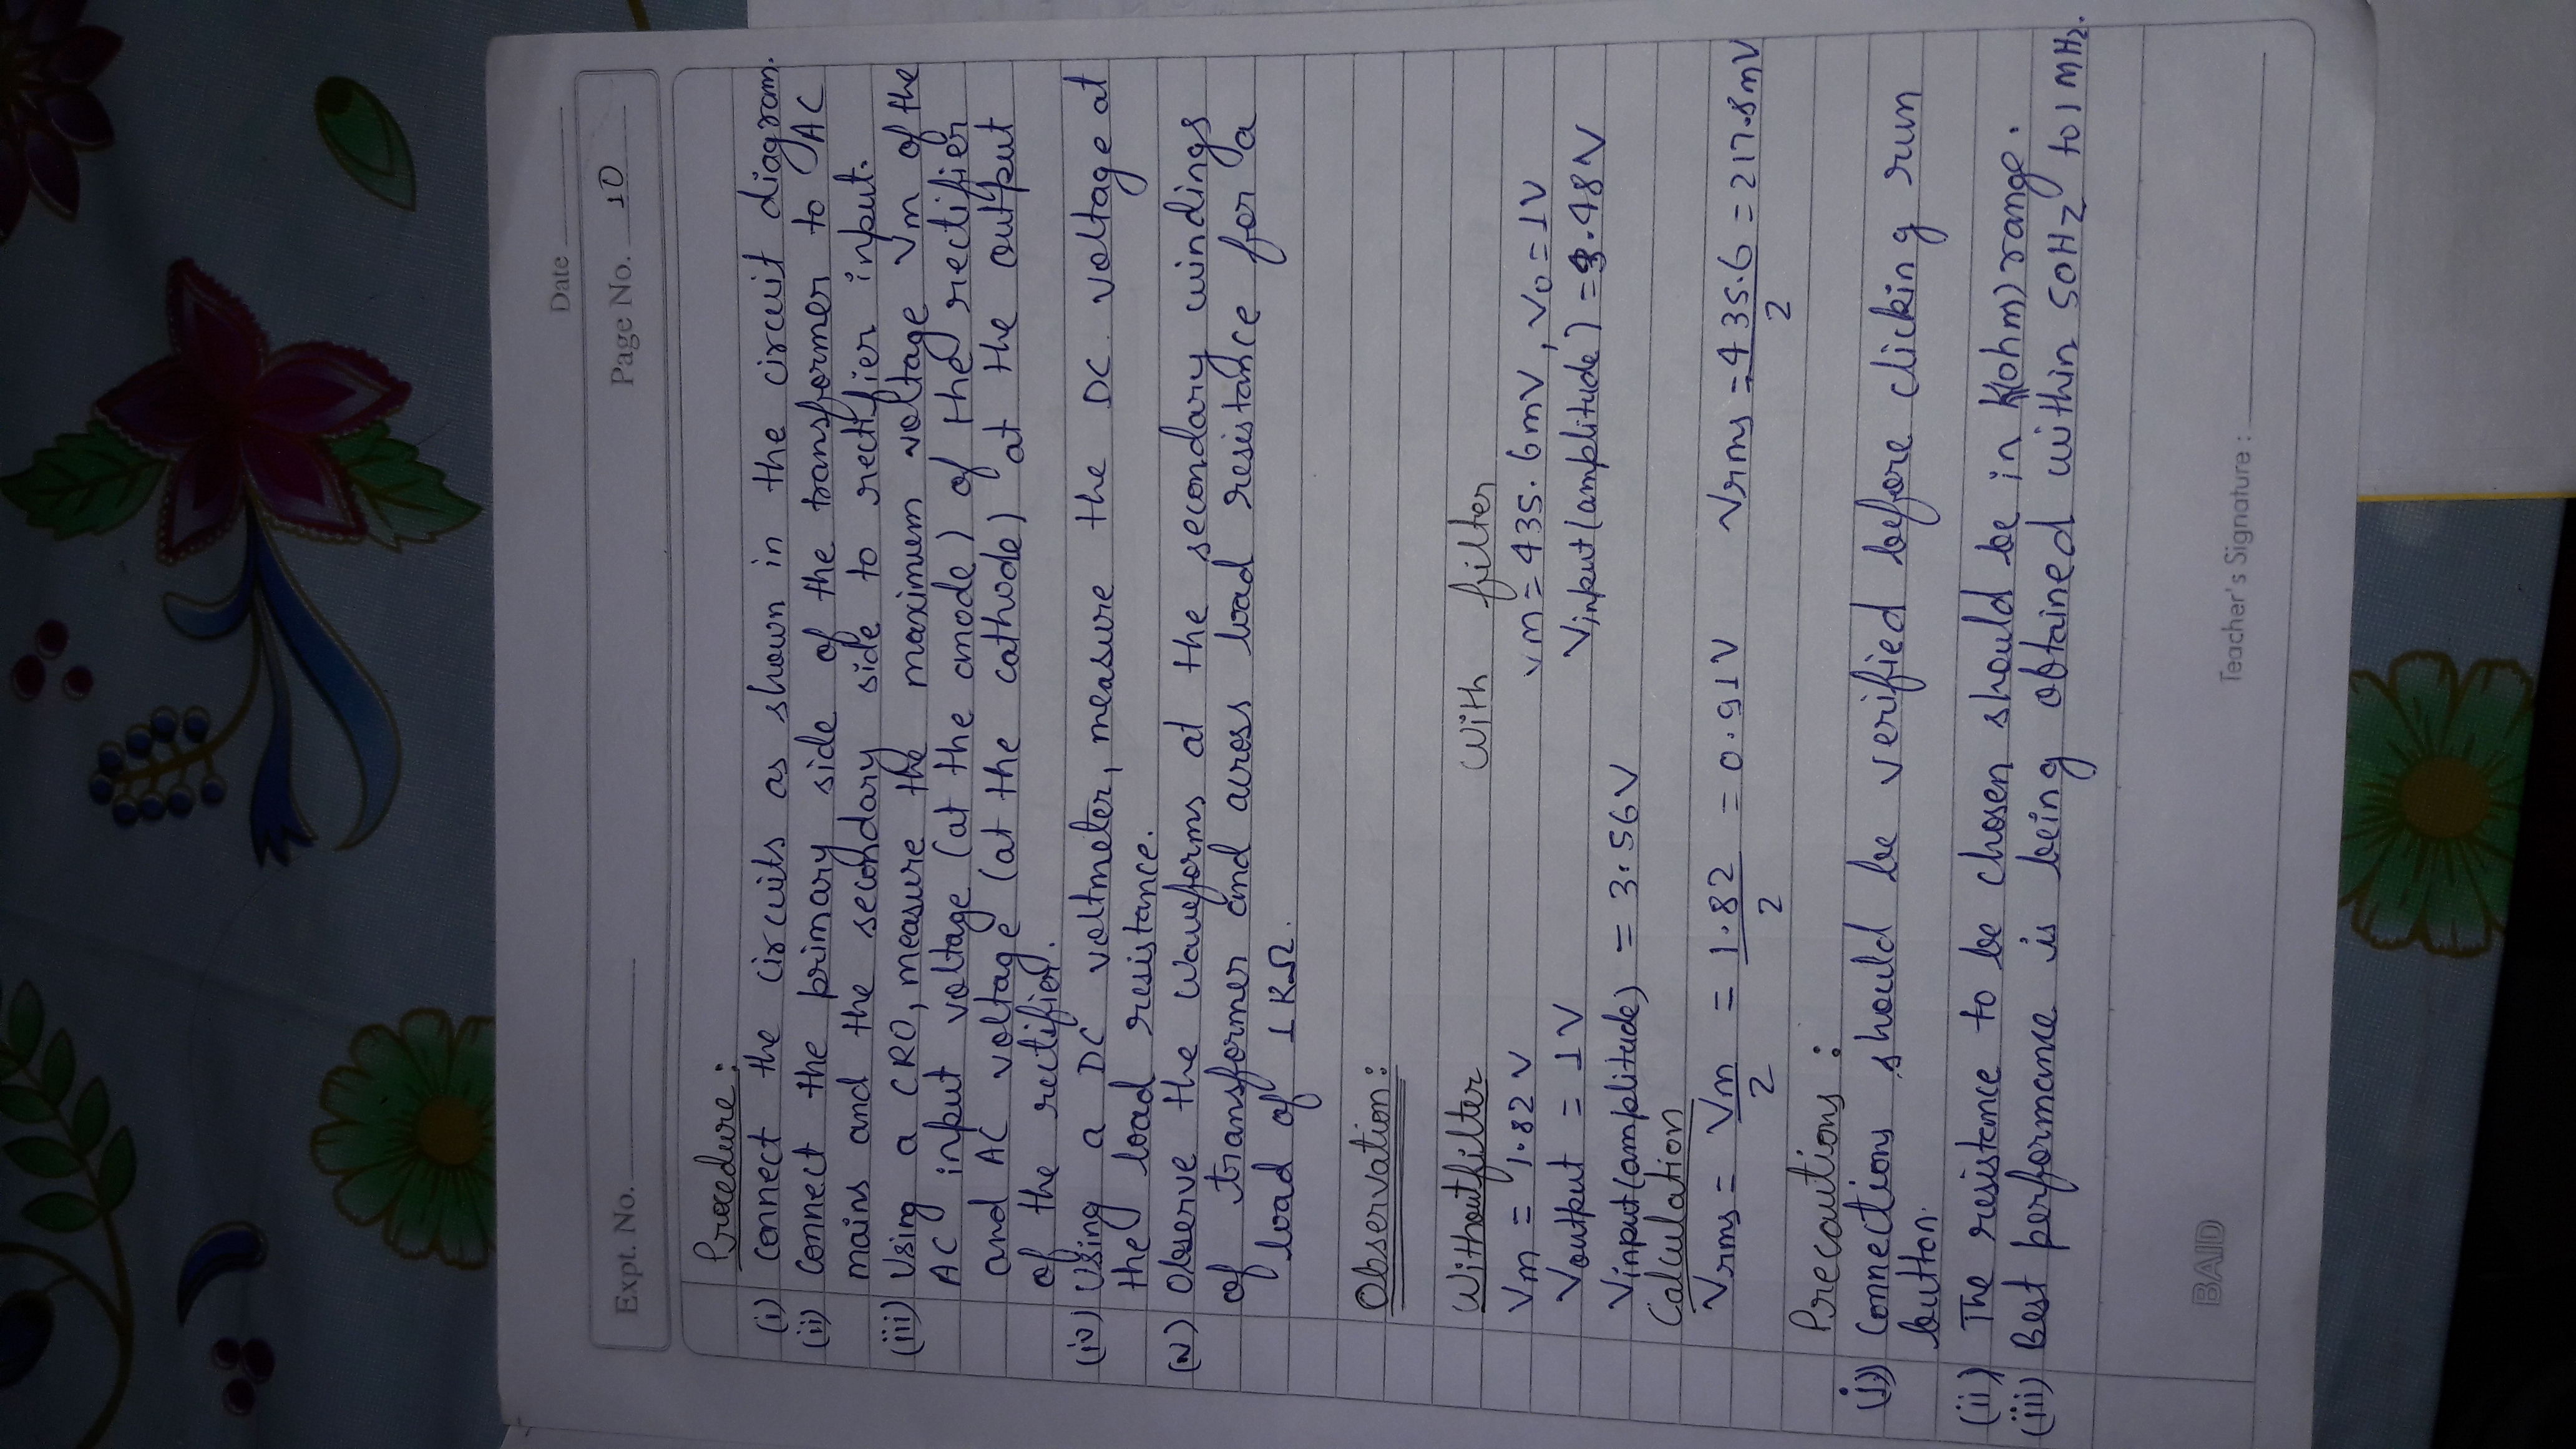 Date
Expt. No.
Page No. 10
Procedure:
(i) Connect the circuits as shown in the circuit diagram.
(ii) Connect the primary side of the transformer to AC
mains and the secondary side to rectifier input.
(iii) Using a CRO, measure the maximum voltage Vm of the
AC input voltage (at the anode) of the rectifier
and AC voltage (at the cathode) at the output
of the rectifier.
(iv) Using a DC voltmeter, measure the DC voltage at
the load resistance.
(v) Observe the waveforms at the secondary windings
of transformer and across load resistance for a
load of 1 KΩ.
Observation:
Without filter With filter
Vm = 1.82 V vm = 435.6mV, Vo = 1V
Voutput = 1V Vinput (amplitude) = .48V
Vinput (amplitude) = 3.56V
Calculation
Vrms = Vm/2 = 1.82/2 = 0.91V Vrms = 435.6/2 = 217.8mV
Precautions:
(i) Connections should be verified before clicking run
button.
(ii) The resistance to be chosen should be in K(ohm) range.
(iii) Best performance is being obtained within 50Hz to 1 MHz.
BAID
Teacher's Signature :